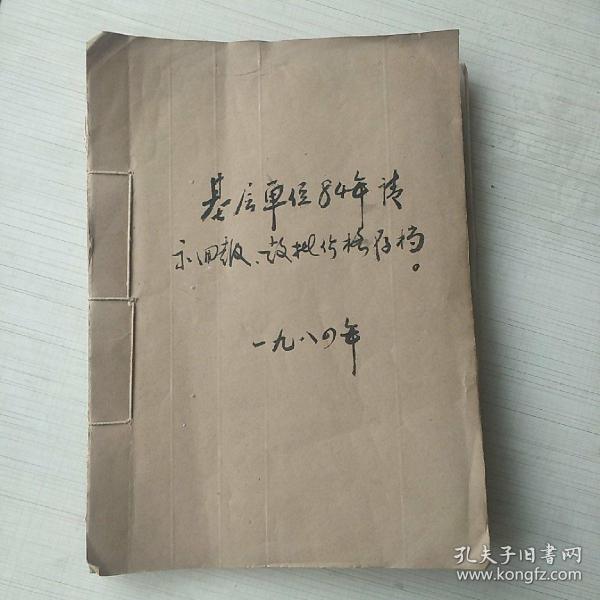 基层单位84年请
示回报、故批价格存档。
一九八四年
孔夫子旧書网
www.kongfz.com